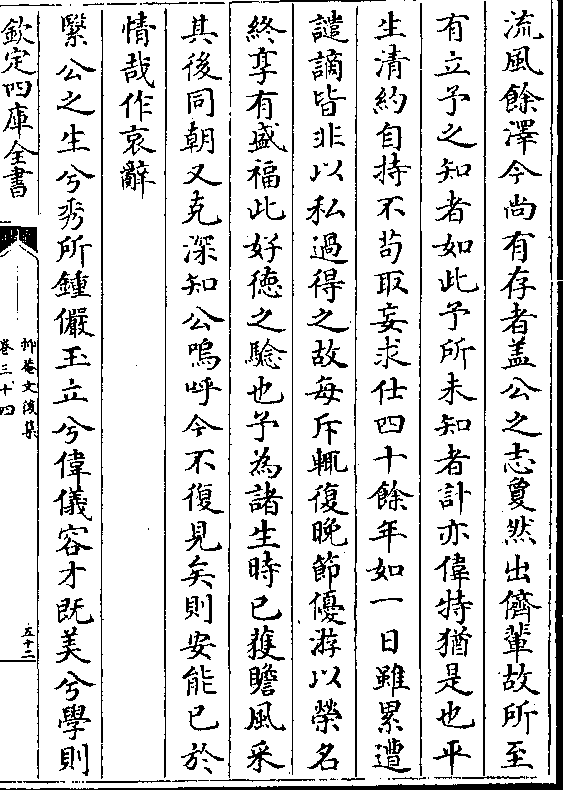 流風餘澤今尚有存者盖公之志敻然出儕輩故所至
有立予之知者如此予所未知者計亦偉特猶是也平
生清約自持不苟取妄求仕四十餘年如一日雖累遭
譴謫皆非以私過得之故每斥輒復晚節優游以榮名
終享有盛福此好徳之驗也予為諸生時已獲瞻風采
其後同朝又克深知公嗚呼今不復見矣則安能已於
情哉作哀辭
繄公之生兮秀所鍾儼玉立兮偉儀容才既美兮學則
欽定四庫全書
抑菴文後集
卷三十四
五十二